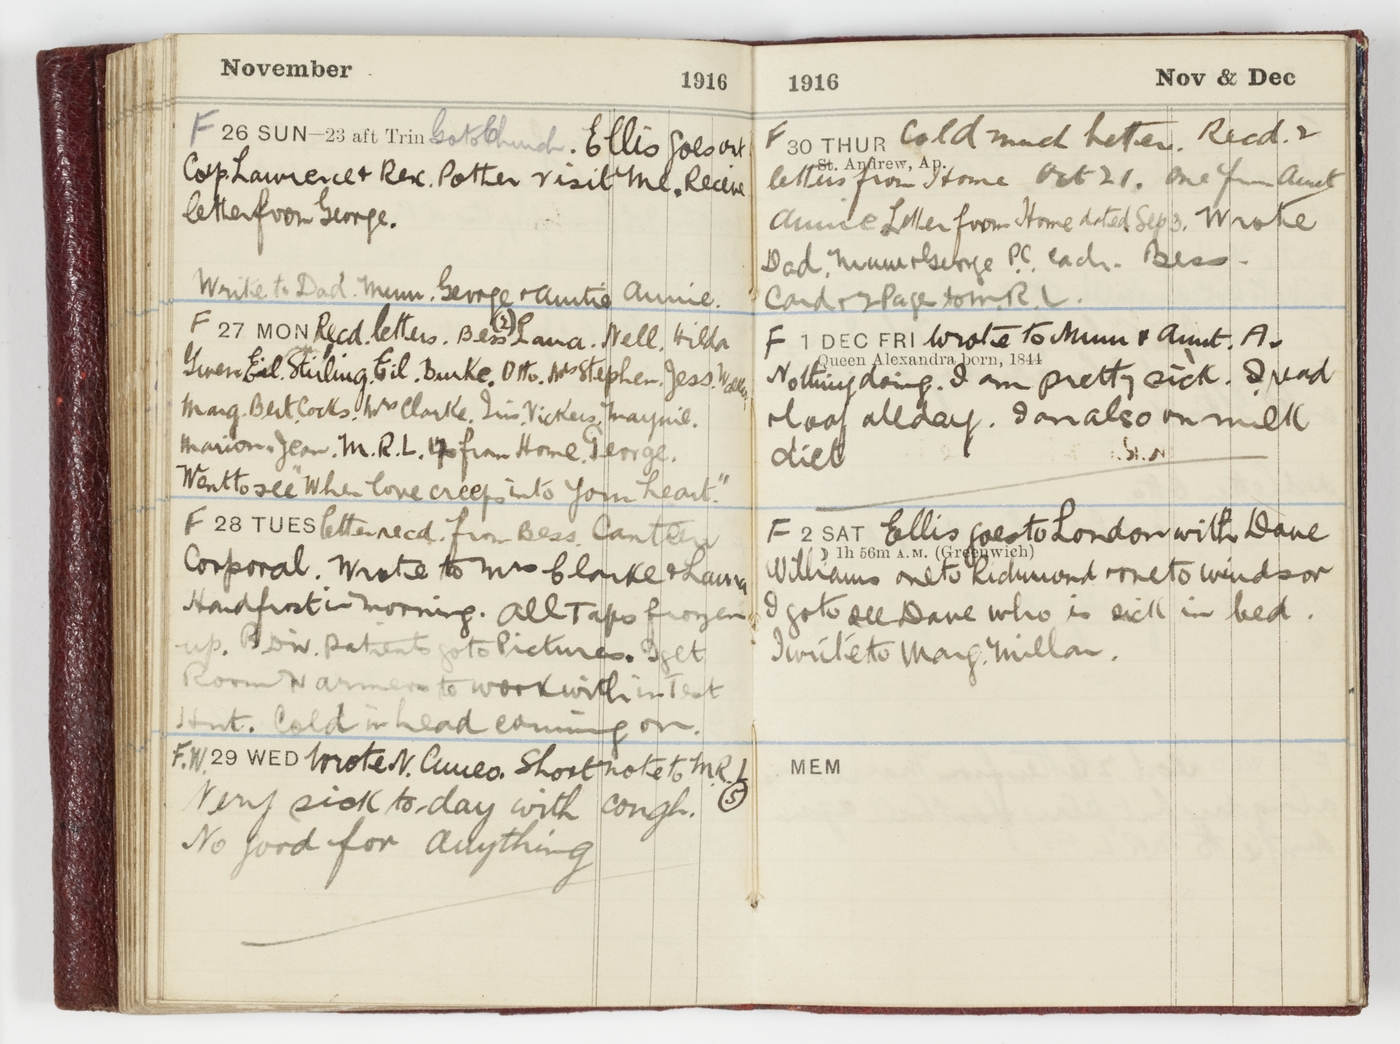 November 1916
F 26 SUN—23 aft Trin Go to Church. Ellis goes out
Corp. Lawrence & Rex. Potter visit Me. Receive
letter from George.
Write to Dad. Mum. George & Auntie Annie.
F 27 MON Recd. letters. Bess (2) Laura. Nell. Hilda
Gwen. Eil. Stirling. Eil. Burke. Otto. Mrs Stephen. Jess.
Marg. Bert Cocks. Mrs Clarke. Vickers.
Marion. Jean. M.R.L. 4 from Home. George.
Went to see "When love creeps into your heart."
F 28 TUES letter recd. from Bess. Canteen
Corporal. Wrote to Mrs Clarke & Laura
Hard frost in morning. All Taps frozen
up. B Div. patients go to Pictures. I get
Room Warmers to work with in Test
Hut. Cold in head coming on.
F.W. 29 WED Wrote N. Short note to M.R.L
(5)
Very sick to-day with cough.
No good for anything
1916 Nov & Dec
F 30 THUR Cold much better. Recd. 2
St. Andrew, Ap.
letters from Home Oct 21. One from Aunt
Annie Letter from Home dated Sep 3. Wrote
Dad, Mum & George P.C. each. Bess -
Card & 2 Page to M.R.L.
F 1 DEC FRI Wrote to Mum & Aunt. A.
Queen Alexandra born, 1844
Nothing doing. I am pretty sick. I read
& loaf all day. I am also on milk
diet
F 2 SAT Ellis goes to London with Dave
☽ 1h 56m A.M. (Greenwich)
Williams one to Richmond & one to Windsor
I go to see Dave who is sick in bed.
I write to Marg. Millar.
MEM